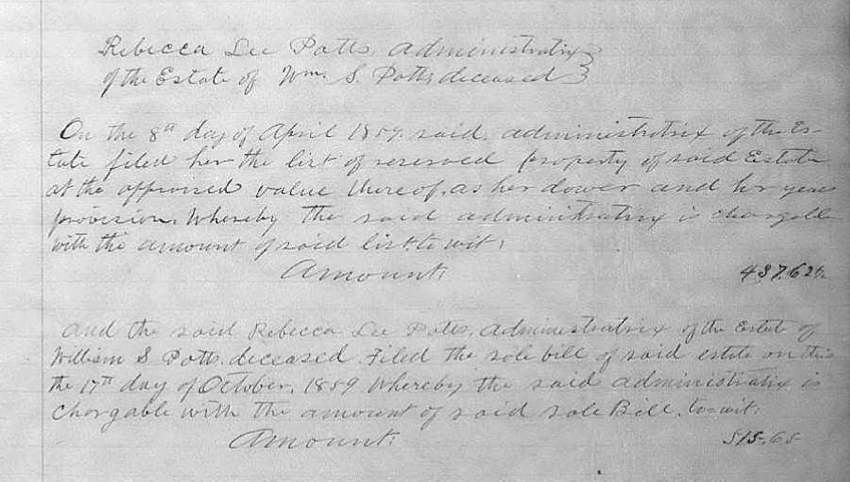 Rebecca Lee Potts Administratrix }
of the Estate of Wm. S. Potts deceased }
On the 8th day of April 1859. said administratrix of the Es-
tate filed her the list of reserved property of said Estate
at the appraised value thereof, as her dower and her years
provision, Whereby the said administratrix is chargable
with the amount of said list. to wit;
Amount: 437.62½
And the said Rebecca Lee Potts, Administratrix of the Estate of
William S Potts. deceased. Filed the sale bill of said estate on this
the 17th day of October, 1859 Whereby the said administratrix is
Chargable with the amount of said sale Bill. to-wit:
Amount: 515.65